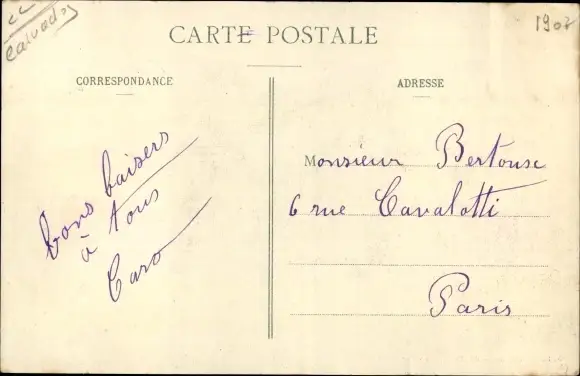 Calvados
1907
CARTE POSTALE
CORRESPONDANCE
bons baisers
à tous
Caro
ADRESSE
Monsieur Bertouse
6 rue Cavalotti
Paris